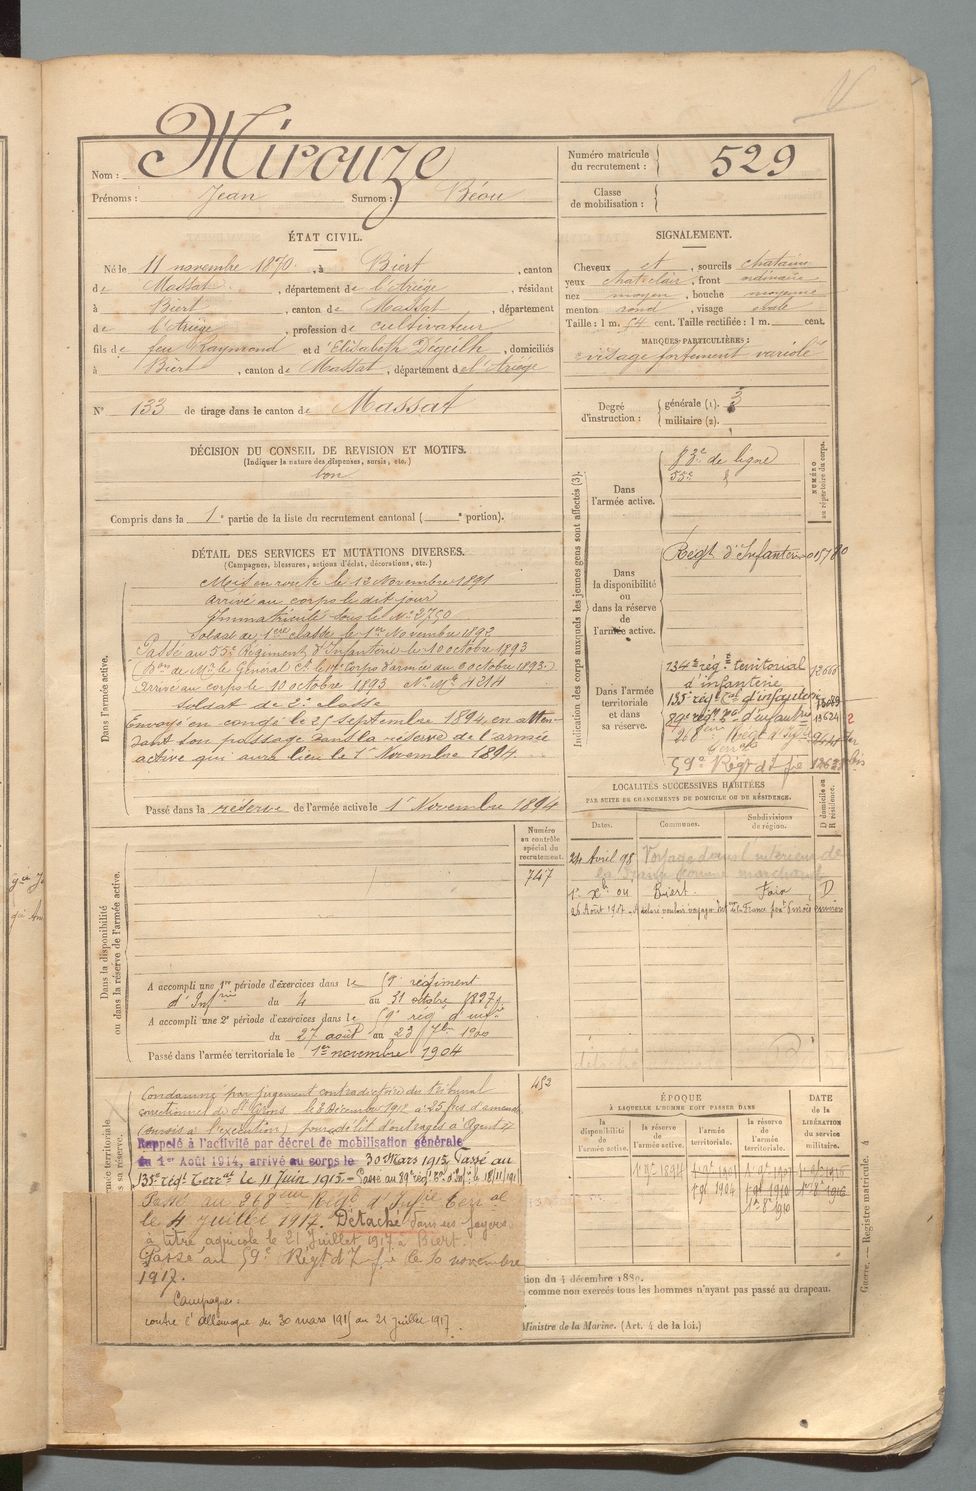 Nom : Mirouze
Prénoms : Jean Surnom : Béou
Numéro matricule du recrutement : 529
Classe de mobilisation :
ÉTAT CIVIL.
Né le 11 novembre 1870, à Biert, canton
de Massat, département de l'Ariège, résidant
à Biert, canton de Massat, département
de l'Ariège, profession de cultivateur
fils de feu Raymond et d'Elisabeth Dégeilh, domiciliés
à Biert, canton de Massat, département de l'Ariège
N° 133 de tirage dans le canton de Massat
SIGNALEMENT.
Cheveux et, sourcils chatains
yeux chat clair, front ordinaire
nez moyen, bouche moyenne
menton rond, visage ovale
Taille : 1 m. 54 cent. Taille rectifiée : 1 m. cent.
MARQUES PARTICULIÈRES :
visage fortement variolé
Degré d'instruction : générale (1). 3
militaire (2).
DÉCISION DU CONSEIL DE REVISION ET MOTIFS.
(Indiquer la nature des dispenses, sursis, etc.)
bon
Compris dans la 1e partie de la liste du recrutement cantonal ( e portion).
DÉTAIL DES SERVICES ET MUTATIONS DIVERSES.
(Campagnes, blessures, actions d'éclat, décorations, etc.)
Dans l'armée active.
Mis en route le 12 Novembre 1891
arrivé au corps le dit jour
Immatriculé sous le N° 2750
Soldat de 1ère classe le 1er Novembre 1892
Passé au 55e Régiment d'Infanterie le 10 octobre 1893
Arrivé au corps le 10 octobre 1893 N° Mle 4214
soldat de 2e classe
Envoyé en congé le 25 septembre 1894, en atten-
dant son passage dans la réserve de l'armée
active qui aura lieu le 1er Novembre 1894
Passé dans la réserve de l'armée active le 1er Novembre 1894
Indication des corps auxquels les jeunes gens sont affectés (3).
NUMÉRO au répertoire du corps.
Dans l'armée active.
de ligne
55e
Dans la disponibilité ou dans la réserve de l'armée active.
Régt d'Infanterie 015780
Dans l'armée territoriale et dans sa réserve.
134e rég. territorial
d'infanterie 12666
135e rég. Tal d'infanterie
89e rég. Tal d'infanterie 13624
268em Régt d'Infie
59e Régt d'Infie
LOCALITÉS SUCCESSIVES HABITÉES
PAR SUITE DE CHANGEMENTS DE DOMICILE OU DE RÉSIDENCE.
Dates. Communes. Subdivisions de région. D domicile ou R résidence.
24 Avril 98 Voyage dans l'intérieur de
la France comme marchand
Biert. Foix D
26 Août 1907
Dans la disponibilité ou dans la réserve de l'armée active.
Numéro au contrôle spécial du recrutement.
747
A accompli une 1re période d'exercices dans le 59e régiment
d'Infrie du 4 au 31 octobre 1897
A accompli une 2e période d'exercices dans le 59e rég. d'infie
du 27 août au 23 7bre 1900
Passé dans l'armée territoriale le 1er novembre 1904
452
Condamné par jugement contradictoire du tribunal
correctionnel de St Girons le 3 Décembre 1912 à 25 frcs d'amende
(sursis à l'exécution) pour délit d'outrages à Agent
Rappelé à l'activité par décret de mobilisation générale
du 1er Août 1914, arrivé au corps le 30 Mars 1915, Passé au
135e régt Terral le 11 Juin 1915
Passé au 268em Régt d'Infie Terral
le 4 Juillet 1917. Détaché dans ses foyers
à titre agricole le 21 Juillet 1917 à Biert.
Passé au 59e Régt d'Infie le 10 novembre
1917.
Campagnes :
contre l'Allemagne du 30 mars 1915 au 21 juillet 1917.
ÉPOQUE
À LAQUELLE L'HOMME DOIT PASSER DANS
la disponibilité de l'armée active. la réserve de l'armée active. l'armée territoriale. la réserve de l'armée territoriale.
DATE de la LIBÉRATION du service militaire.
1er 9e 1894
1er 9e 1904
1er 8e 1910
tion du 4 décembre 1889.
comme non exercés tous les hommes n'ayant pas passé au drapeau.
Ministre de la Marine. (Art. 4 de la loi.)
Guerre. — Registre matricule. 4